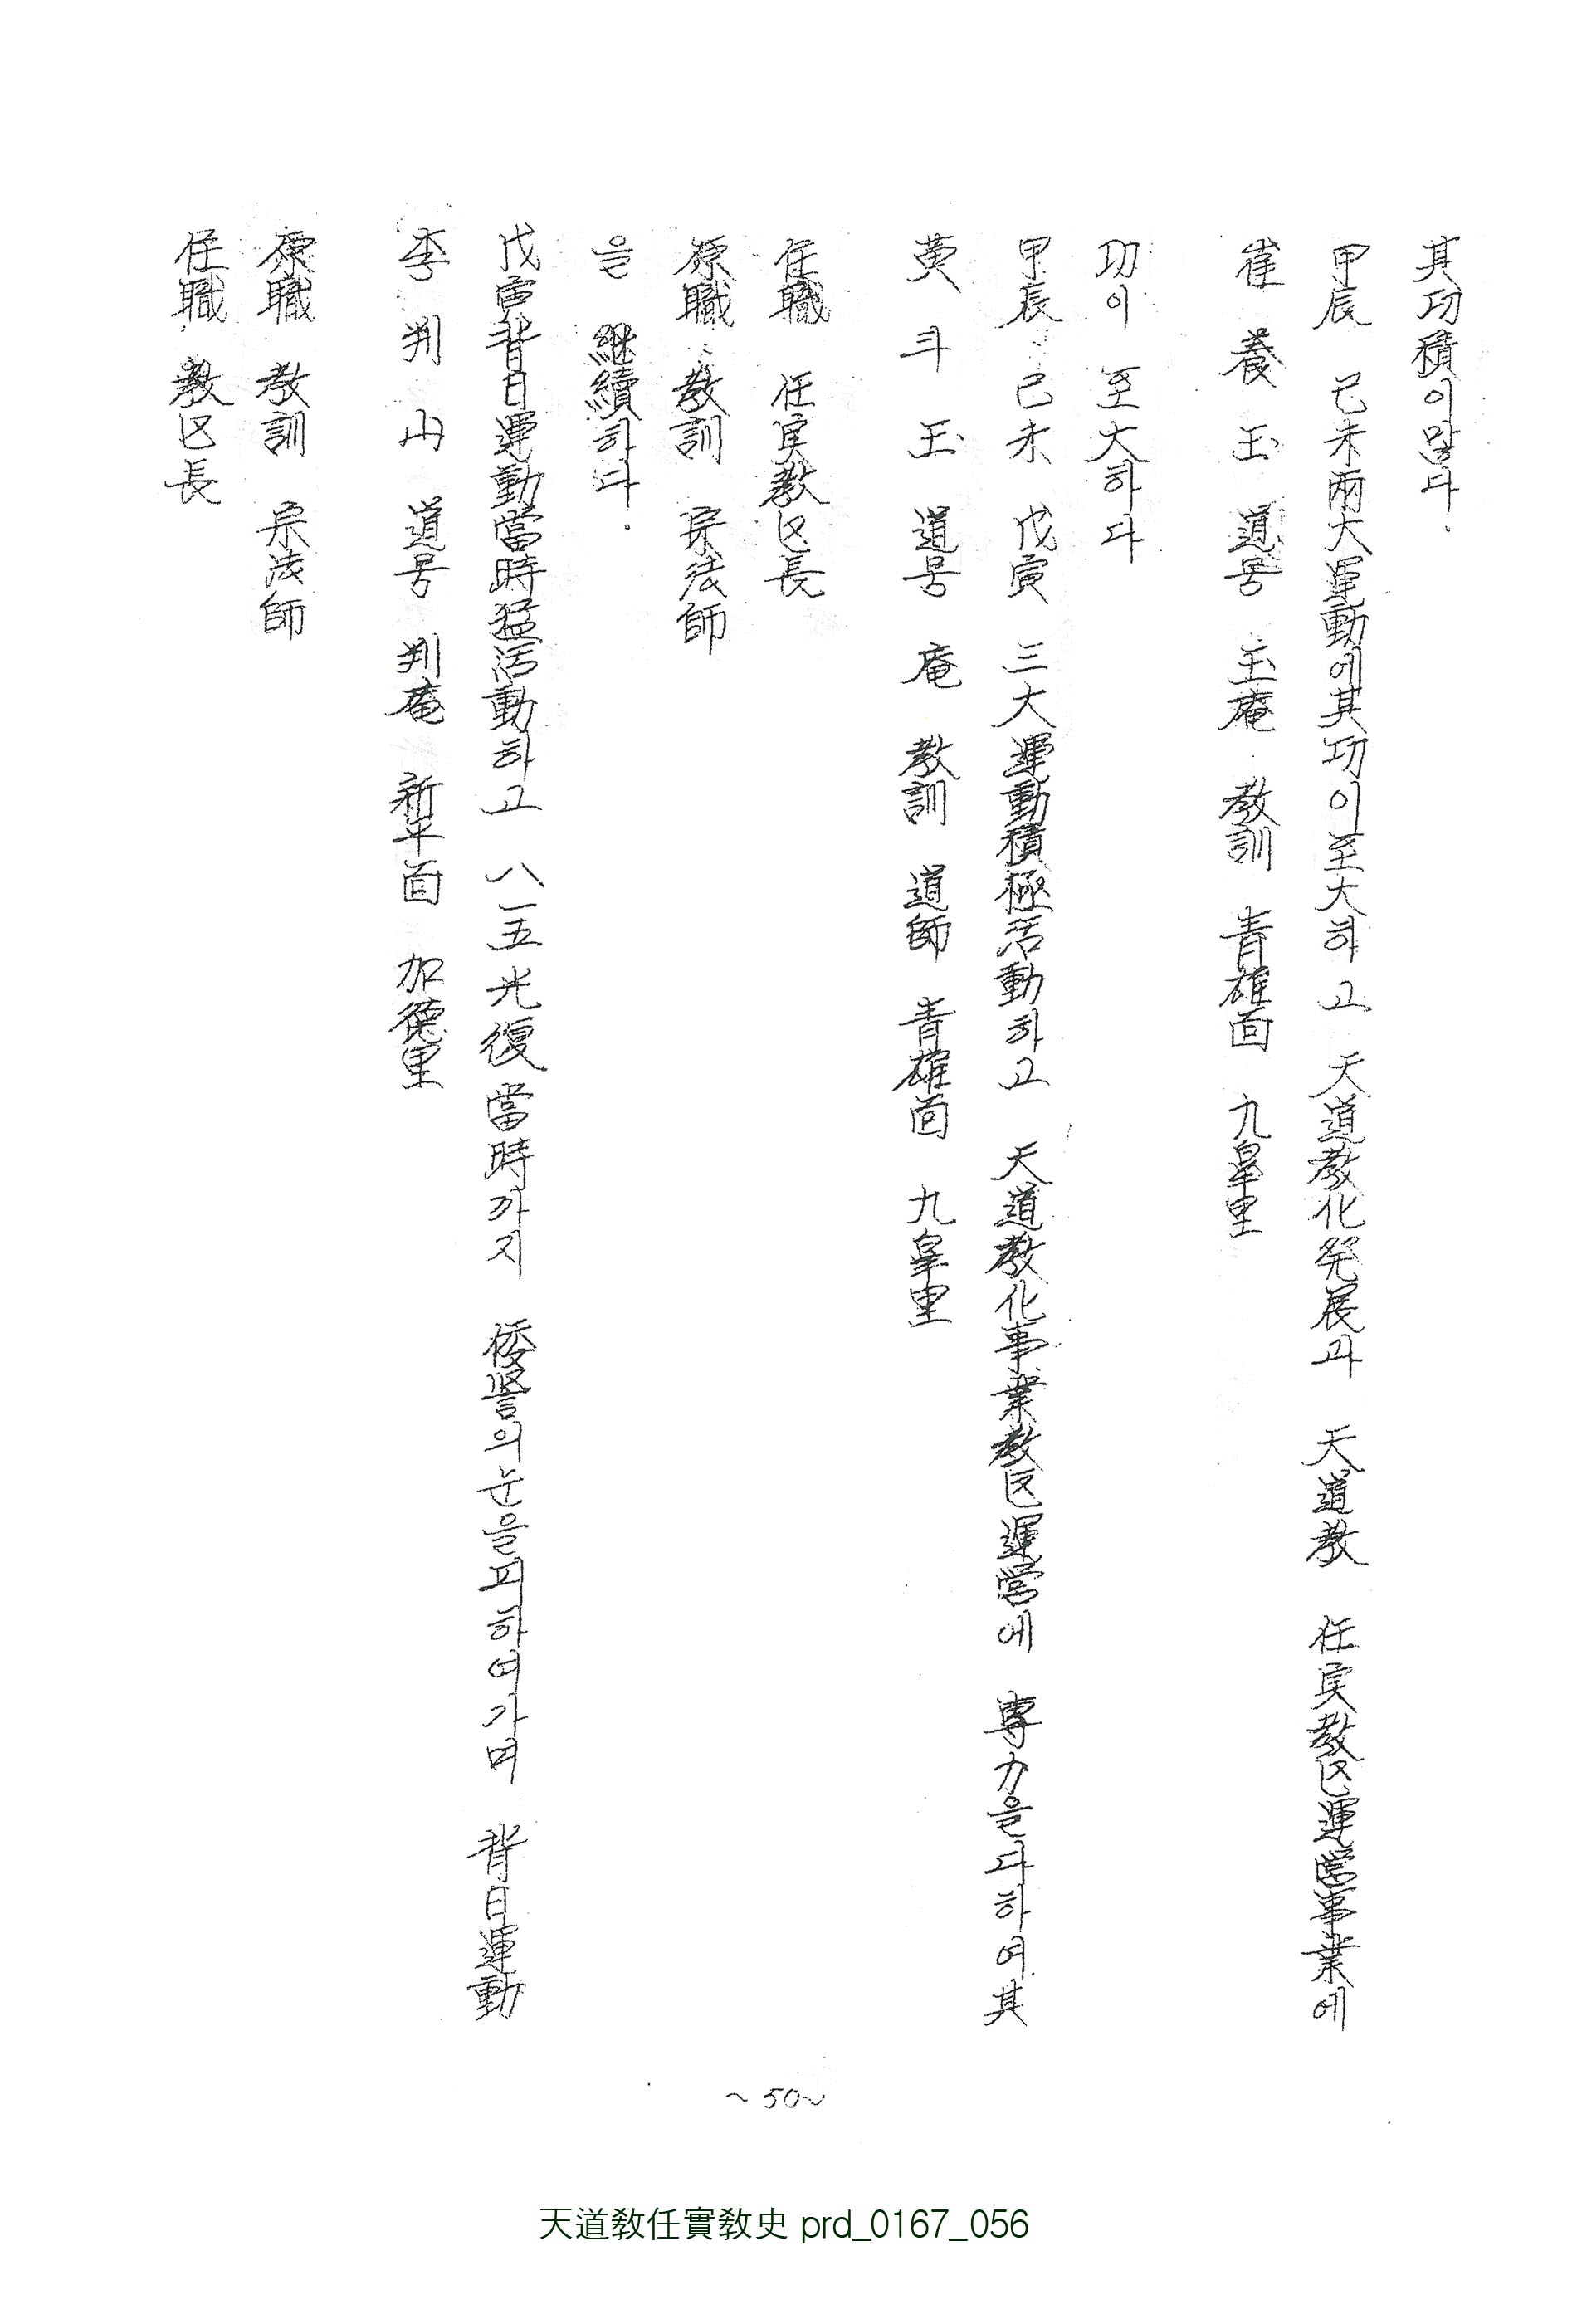 其功積이많다.
甲辰 己未兩大運動에其功이至大하고 天道教化発展과 天道教 任実教区運営事業에
崔養玉 道号 玉庵 教訓 青雄面 九皐里
功이 至大하다
甲辰 己未 戊寅 三大運動積極活動하고 天道教化事業教区運営에 專力을다하여其
黄斗玉 道号 庵 教訓 道師 青雄面 九皐里
任職 任実教区長
原職 教訓 宗法師
을 継續하다.
戊寅背日運動當時猛活動하고 八一五光復當時까지 倭警의눈을피하여가며 背日運動
李判山 道号 判菴 新平面 加德里
原職 教訓 宗法師
任職 教区長
~50~
天道敎任實敎史 prd_0167_056